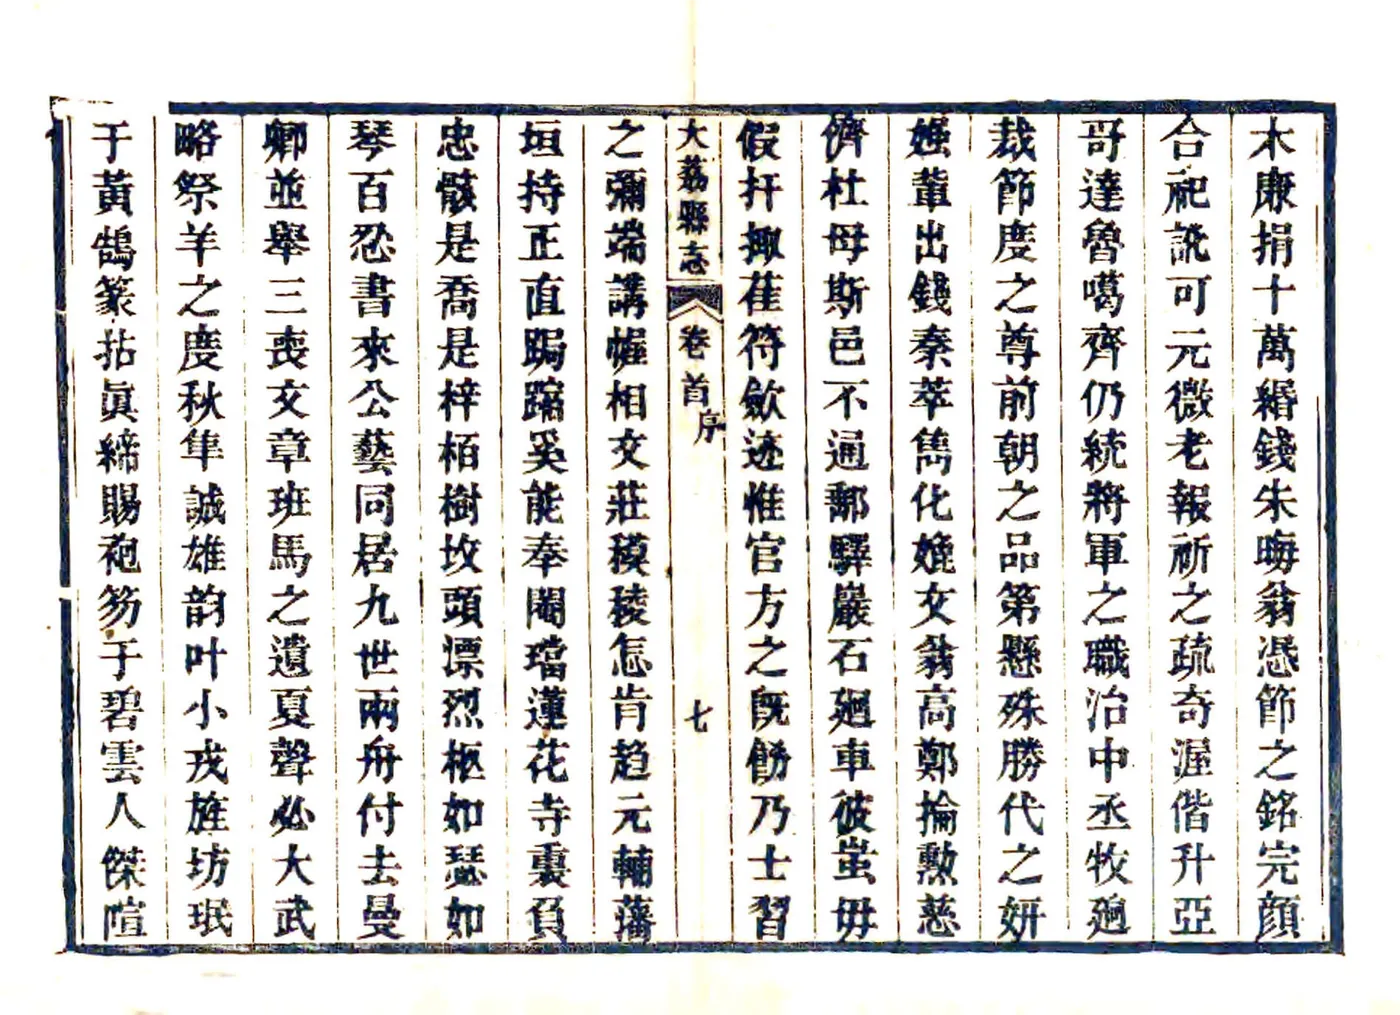 木廉捐十萬緡錢朱晦翁憑節之銘完顏
合祀訛可元微老報祈之疏奇渥偕升亞
哥達魯噶齊仍統將軍之職治中丞牧廻
裁節度之尊前朝之品第懸殊勝代之妍
媸葷出錢秦萃雋化娩女翁高鄭掄勲慈
儕杜母斯邑不通鄠驛巖石廻車彼蚩毋
假扞掫萑苻歛迹惟官方之旣飭乃士習
大荔縣志 卷首 序 七
之彌端講幄相文莊穅稜怎肯趋元輔藩
垣持正直跼蹐奚能奉閹璫蓮花寺裏負
忠骸是喬是梓栢樹坟頭漂烈柩如瑟如
琴百忍書來公藝同居九世兩舟付去曼
卿並舉三喪文章班馬之遺夏聲必大武
略祭羊之度秋隼誠雄韵叶小戎旌坊珉
于黃鵠篆拈眞締賜袍笏于碧雲人傑喧